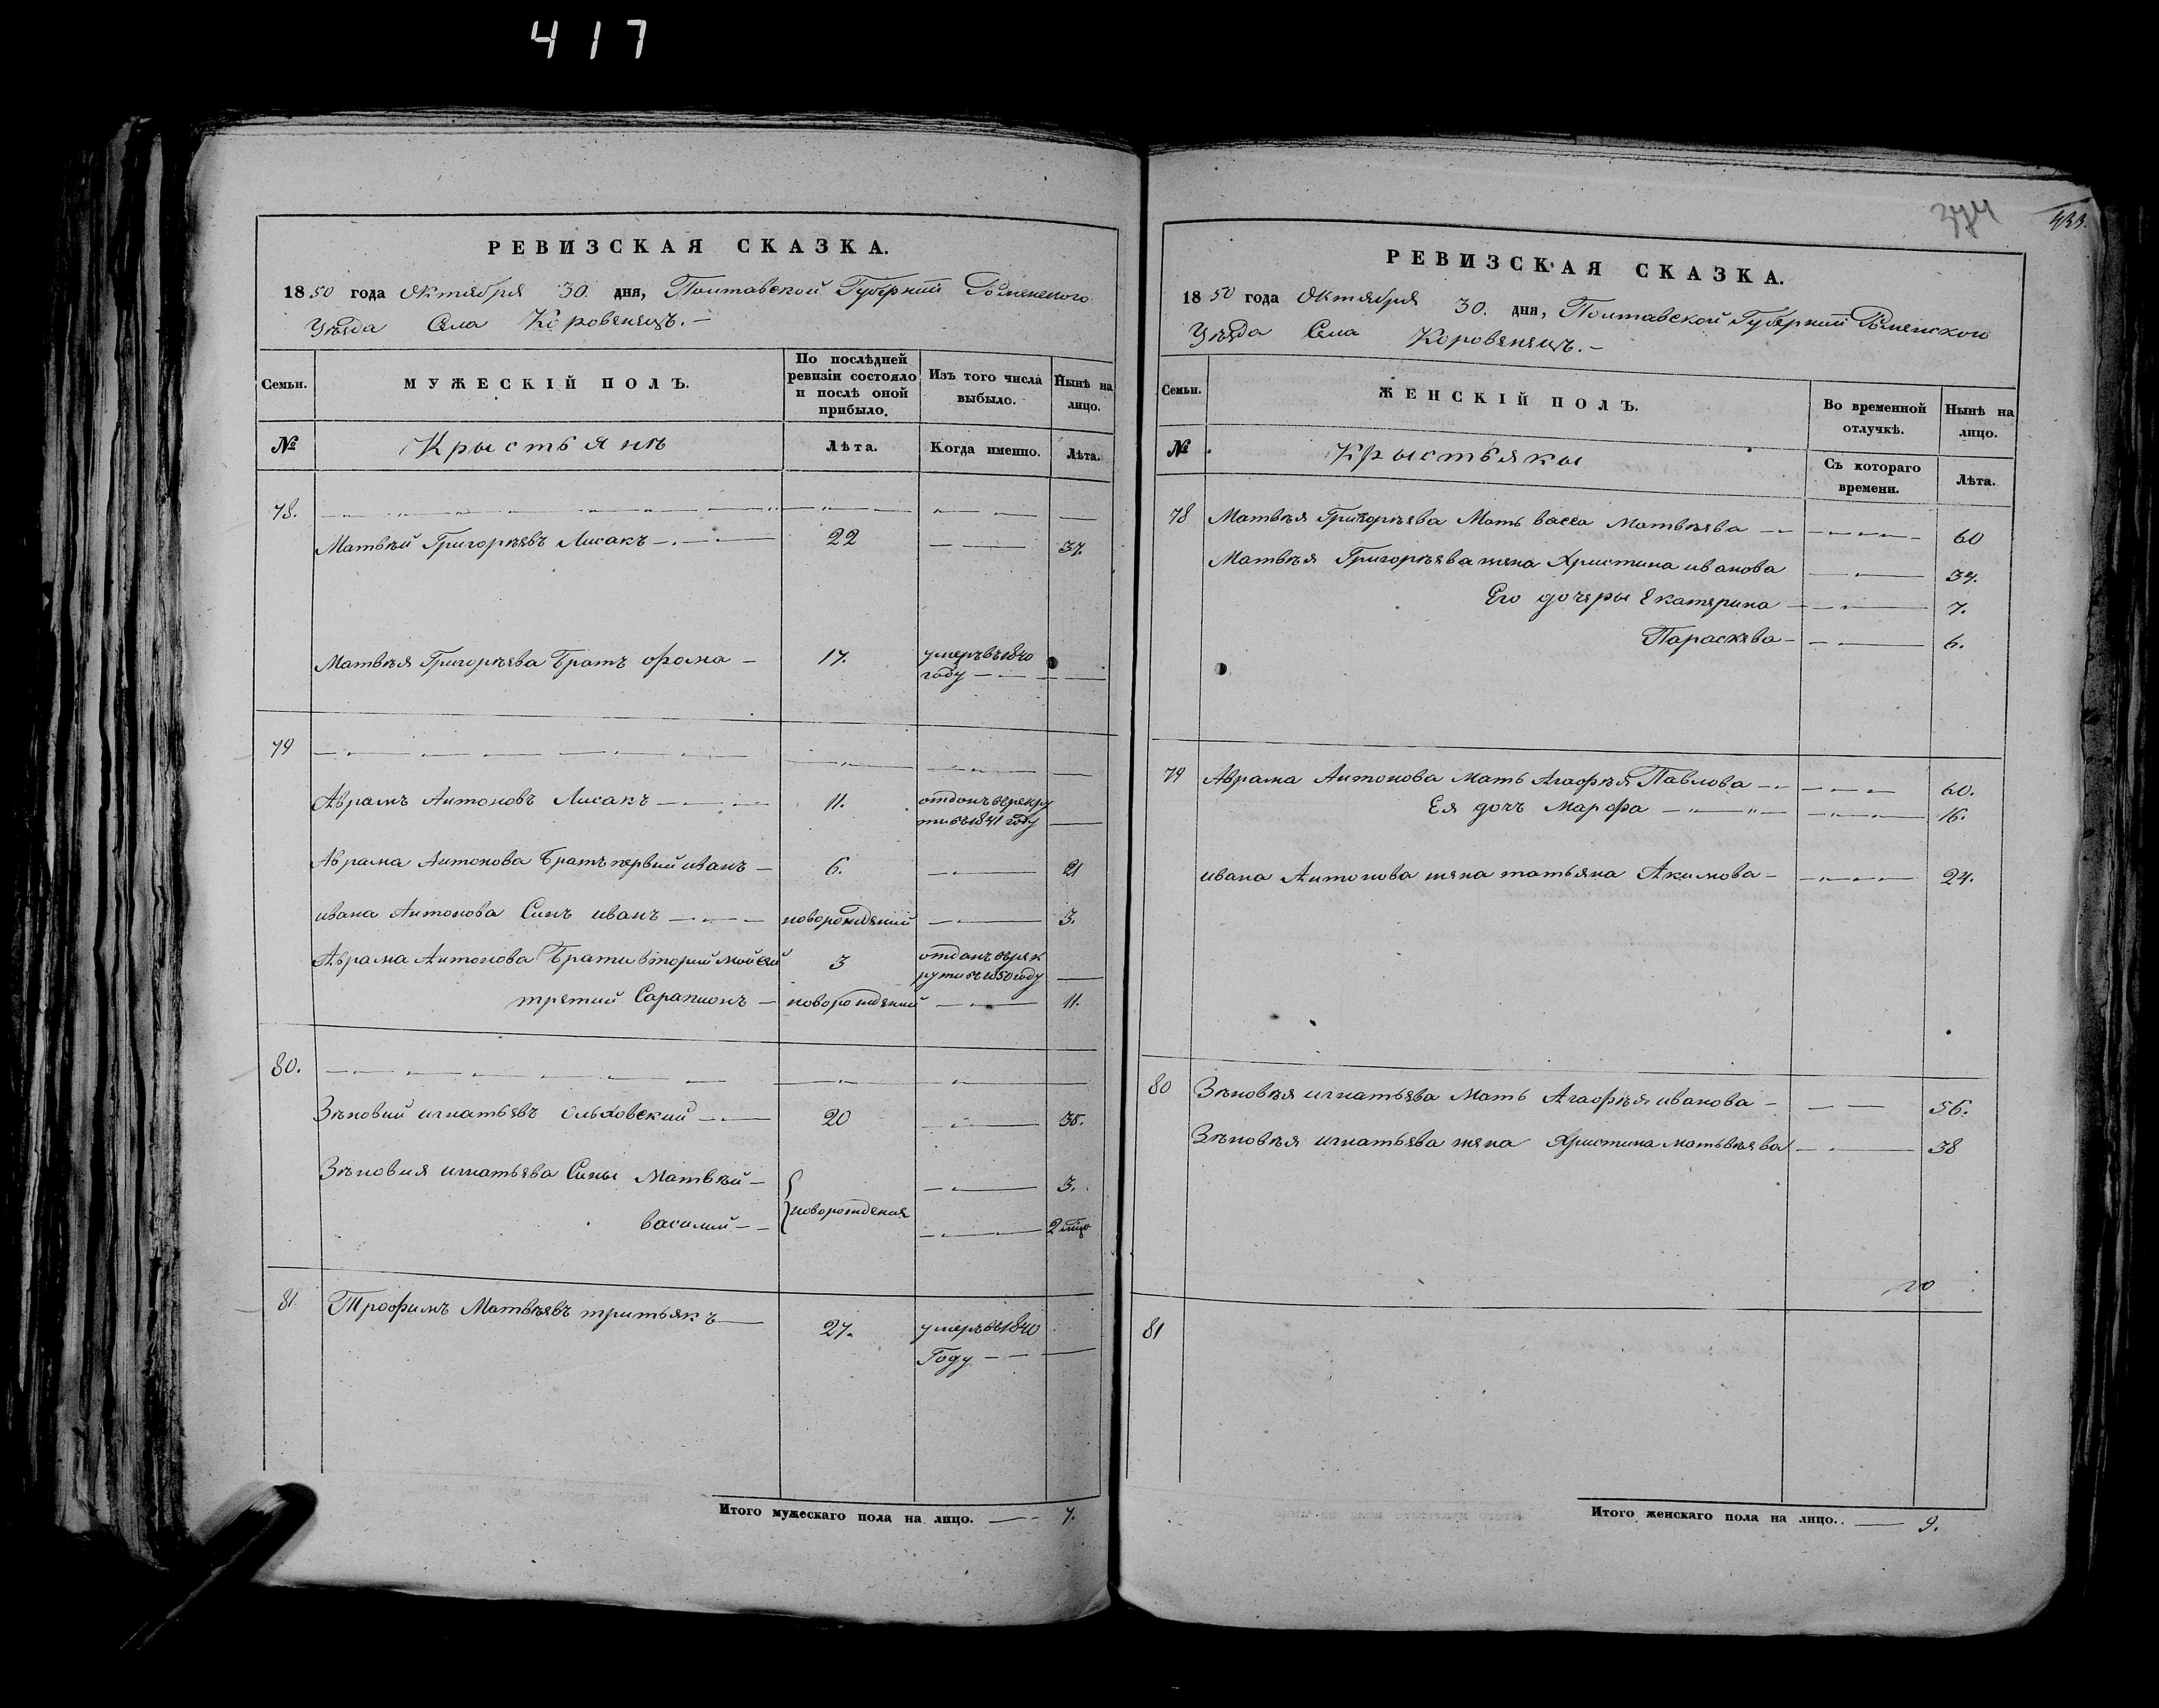 417
РЕВИЗСКАЯ СКАЗКА.
1850 года Октября 30. дня, Полтавской Губерніи Роменского
Уѣзда Села Коровенецъ.
Семьи. МУЖЕСКІЙ ПОЛЪ. По послѣдней ревизіи состояло и послѣ оной прибыло. Изъ того числа выбыло. Нынѣ на лицо.
№ Крыстьянъ Лѣта. Когда именно. Лѣта.
78.
Матвѣй Григорѣевъ Лисакъ 22 37.
Матвѣя Григорѣева Братъ фома 17. умеръ въ 1840
году
79
Аврамъ Антоновъ Лисакъ 11. отданъ въ рекру
ти въ 1841 году
Аврама Антонова Братъ первий иванъ 6. 21
ивана Антонова Синъ иванъ новорождений 3.
Аврама Антонова Брати вторий мойсѣй 3 отданъ въ рек
рути въ 1850 году
третий Сарапионъ новорожденый 11.
80.
Зѣновий игнатьевъ Ольховский 20 35.
Зѣновия игнатьева Сины Матвѣй 3.
новорождения
василий 2
81 Трофимъ Матвѣевъ тритьякъ 27. умеръ въ 1840
Году
Итого мужескаго пола на лицо. 7.
433.
РЕВИЗСКАЯ СКАЗКА.
1850 года Октября 30. дня, Полтавской Губерніи Роменского
Уѣзда Села Коровенецъ.
Семьи. ЖЕНСКІЙ ПОЛЪ. Во временной отлучкѣ. Нынѣ на лицо.
№ Крыстьяны Съ котораго времени. Лѣта.
78 Матвѣя Григорѣева Мать васса Матвѣева 60
Матвѣя Григорѣева жена Христина иванова 37.
Его дочеры Екатерина 7.
Параскева 6.
79 Аврама Антонова мать Агафѣя Павлова 60.
Ея дочъ Марфа 16.
ивана Антонова жена татьяна Акимова 24.
80 Зѣновѣя игнатьева Мать Агафѣя иванова 56.
Зѣновѣя игнатьева жена Христина матьвѣева 38
81
Итого женскаго пола на лицо. 9.